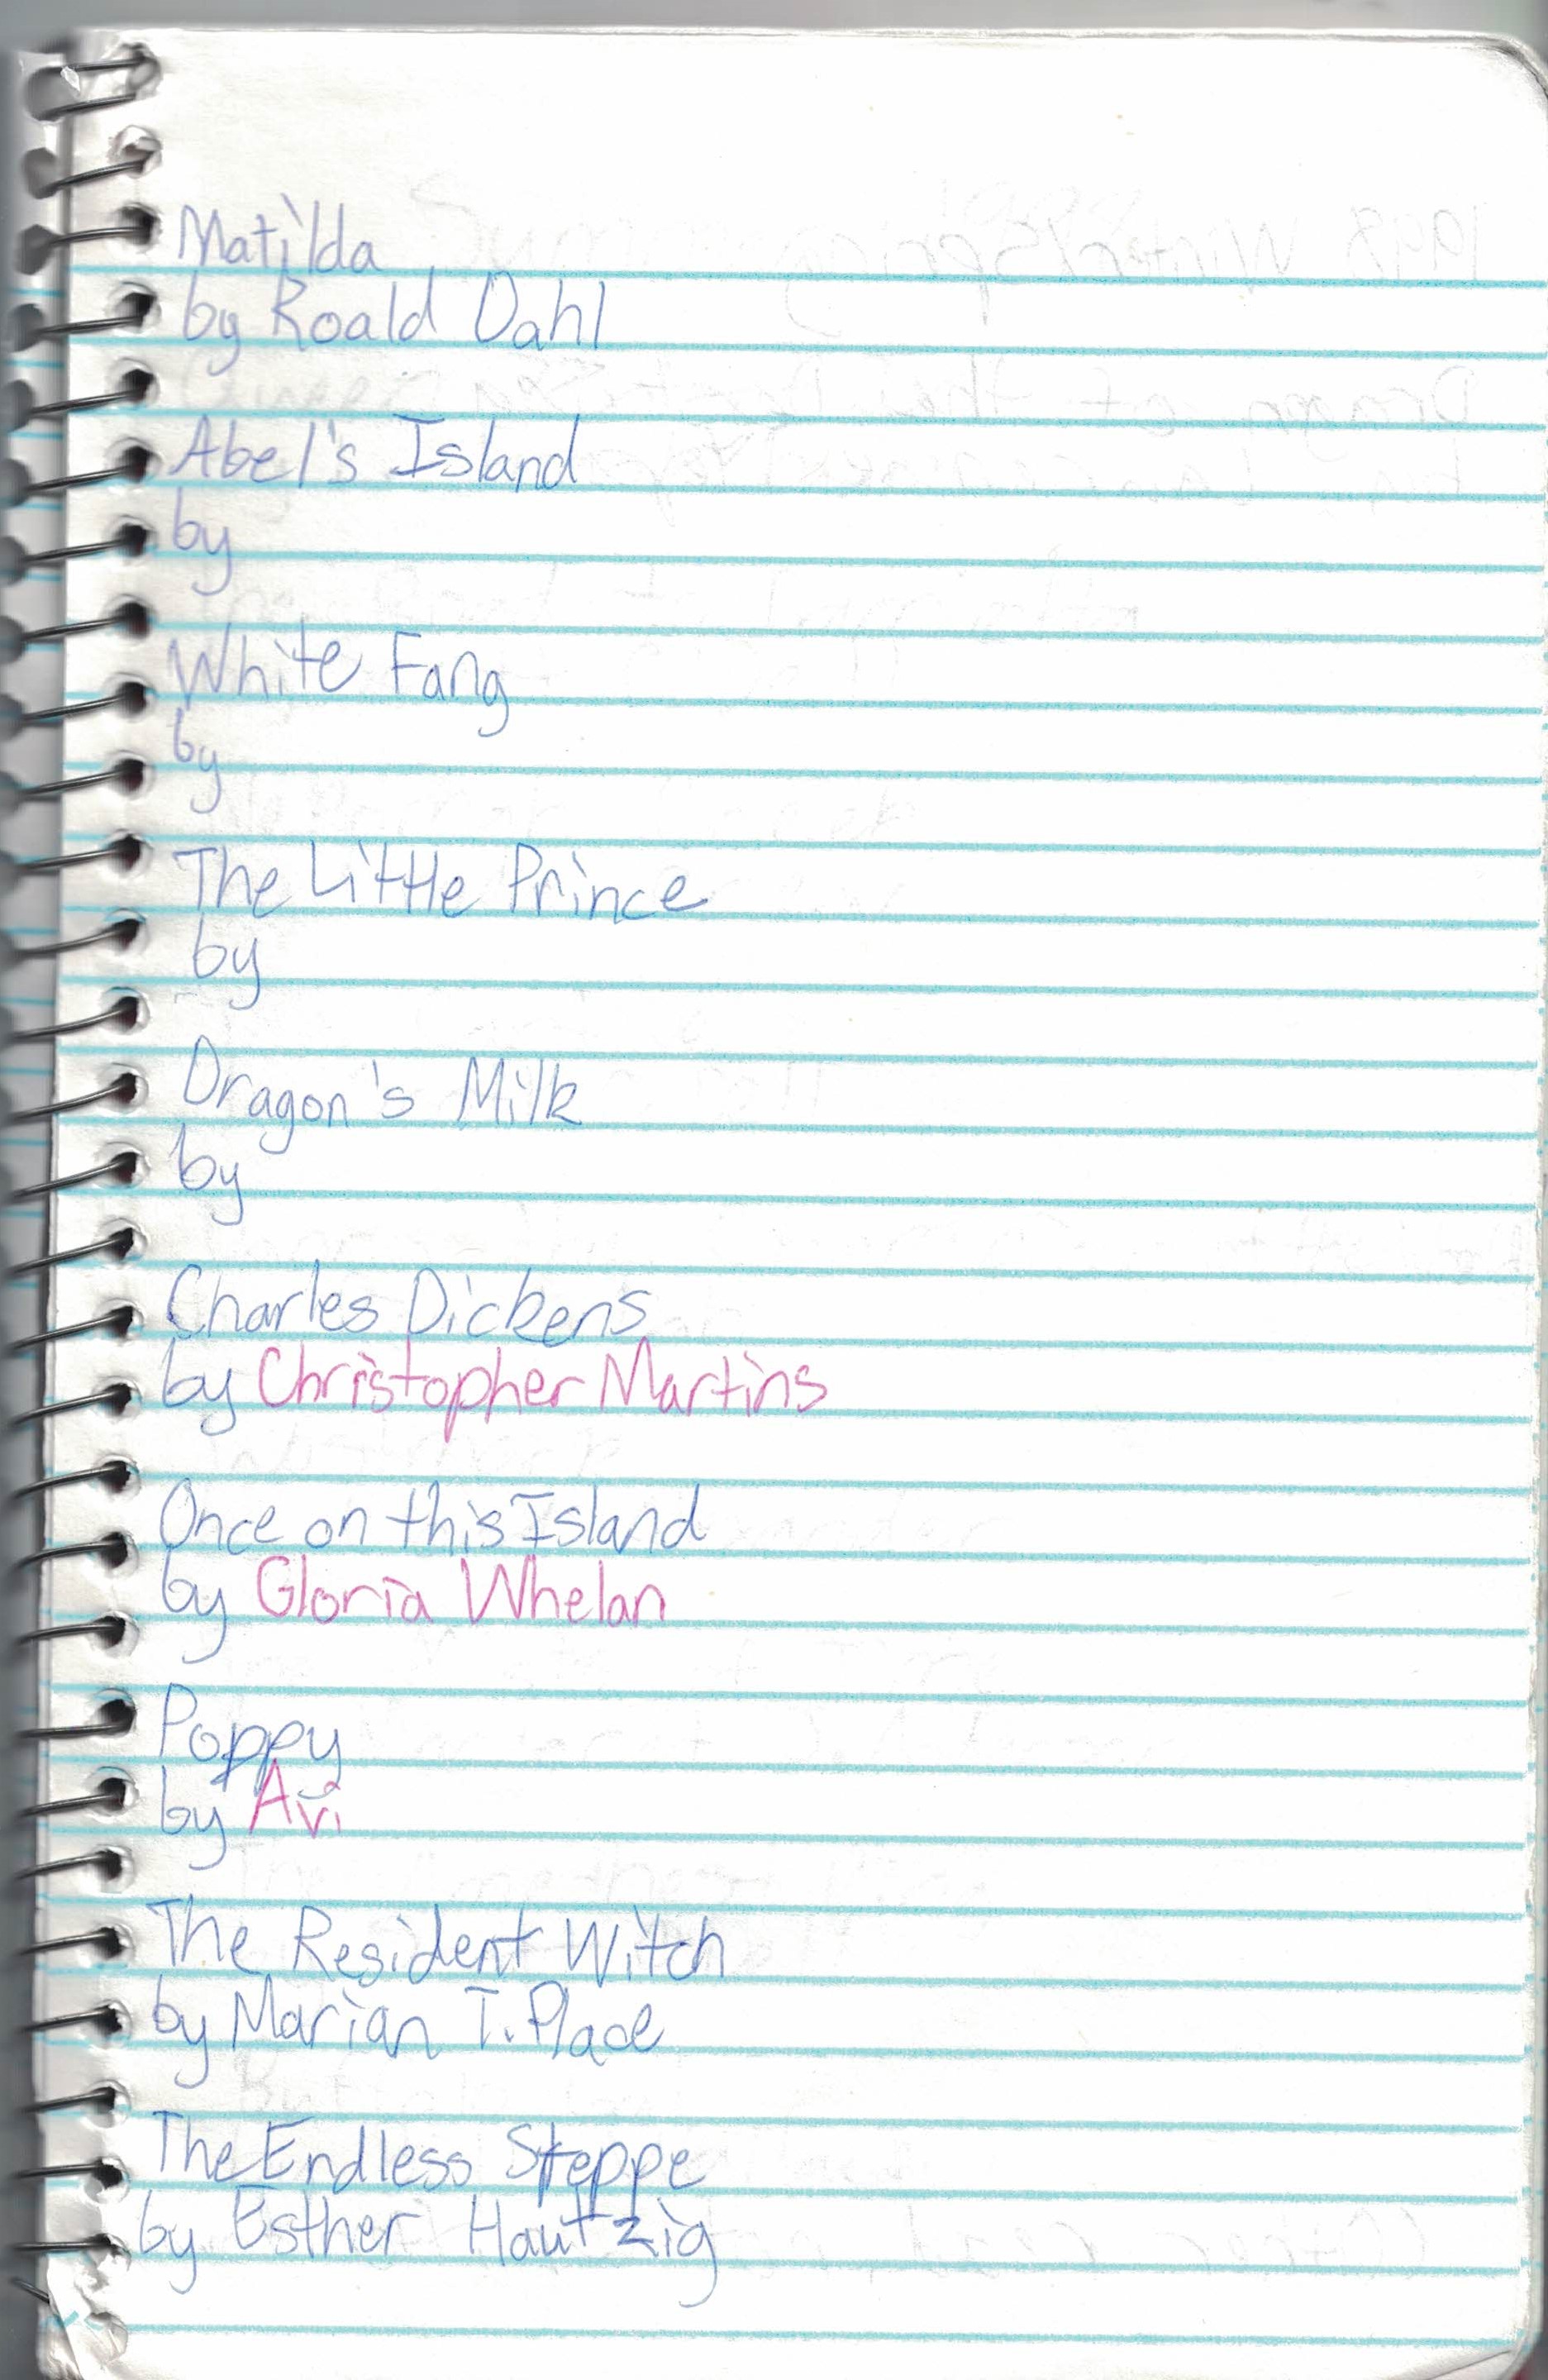 Matilda
by Roald Dahl
Abel's Island
by
White Fang
by
The Little Prince
by
Dragon's Milk
by
Charles Dickens
by Christopher Martins
Once on this Island
by Gloria Whelan
Poppy
by Avi
The Resident Witch
by Marian T. Place
The Endless Steppe
by Esther Hautzig